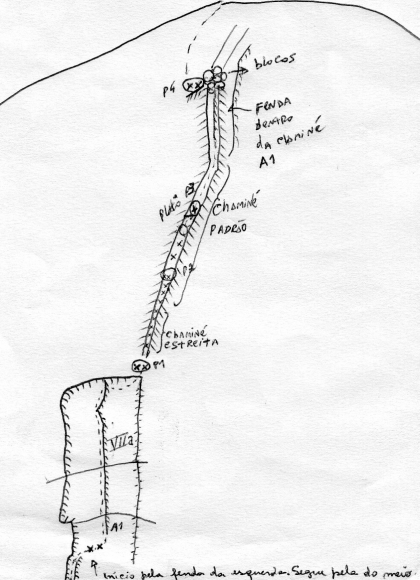 BLOCOS
P4
FENDA
DENTRO
DA CHAMINÉ
A1
PLATÔ P3
CHAMINÉ
PADRÃO
P2
CHAMINÉ
ESTREITA
P1
VIIa
A1
Início pela fenda da esquerda. Segue pela do meio